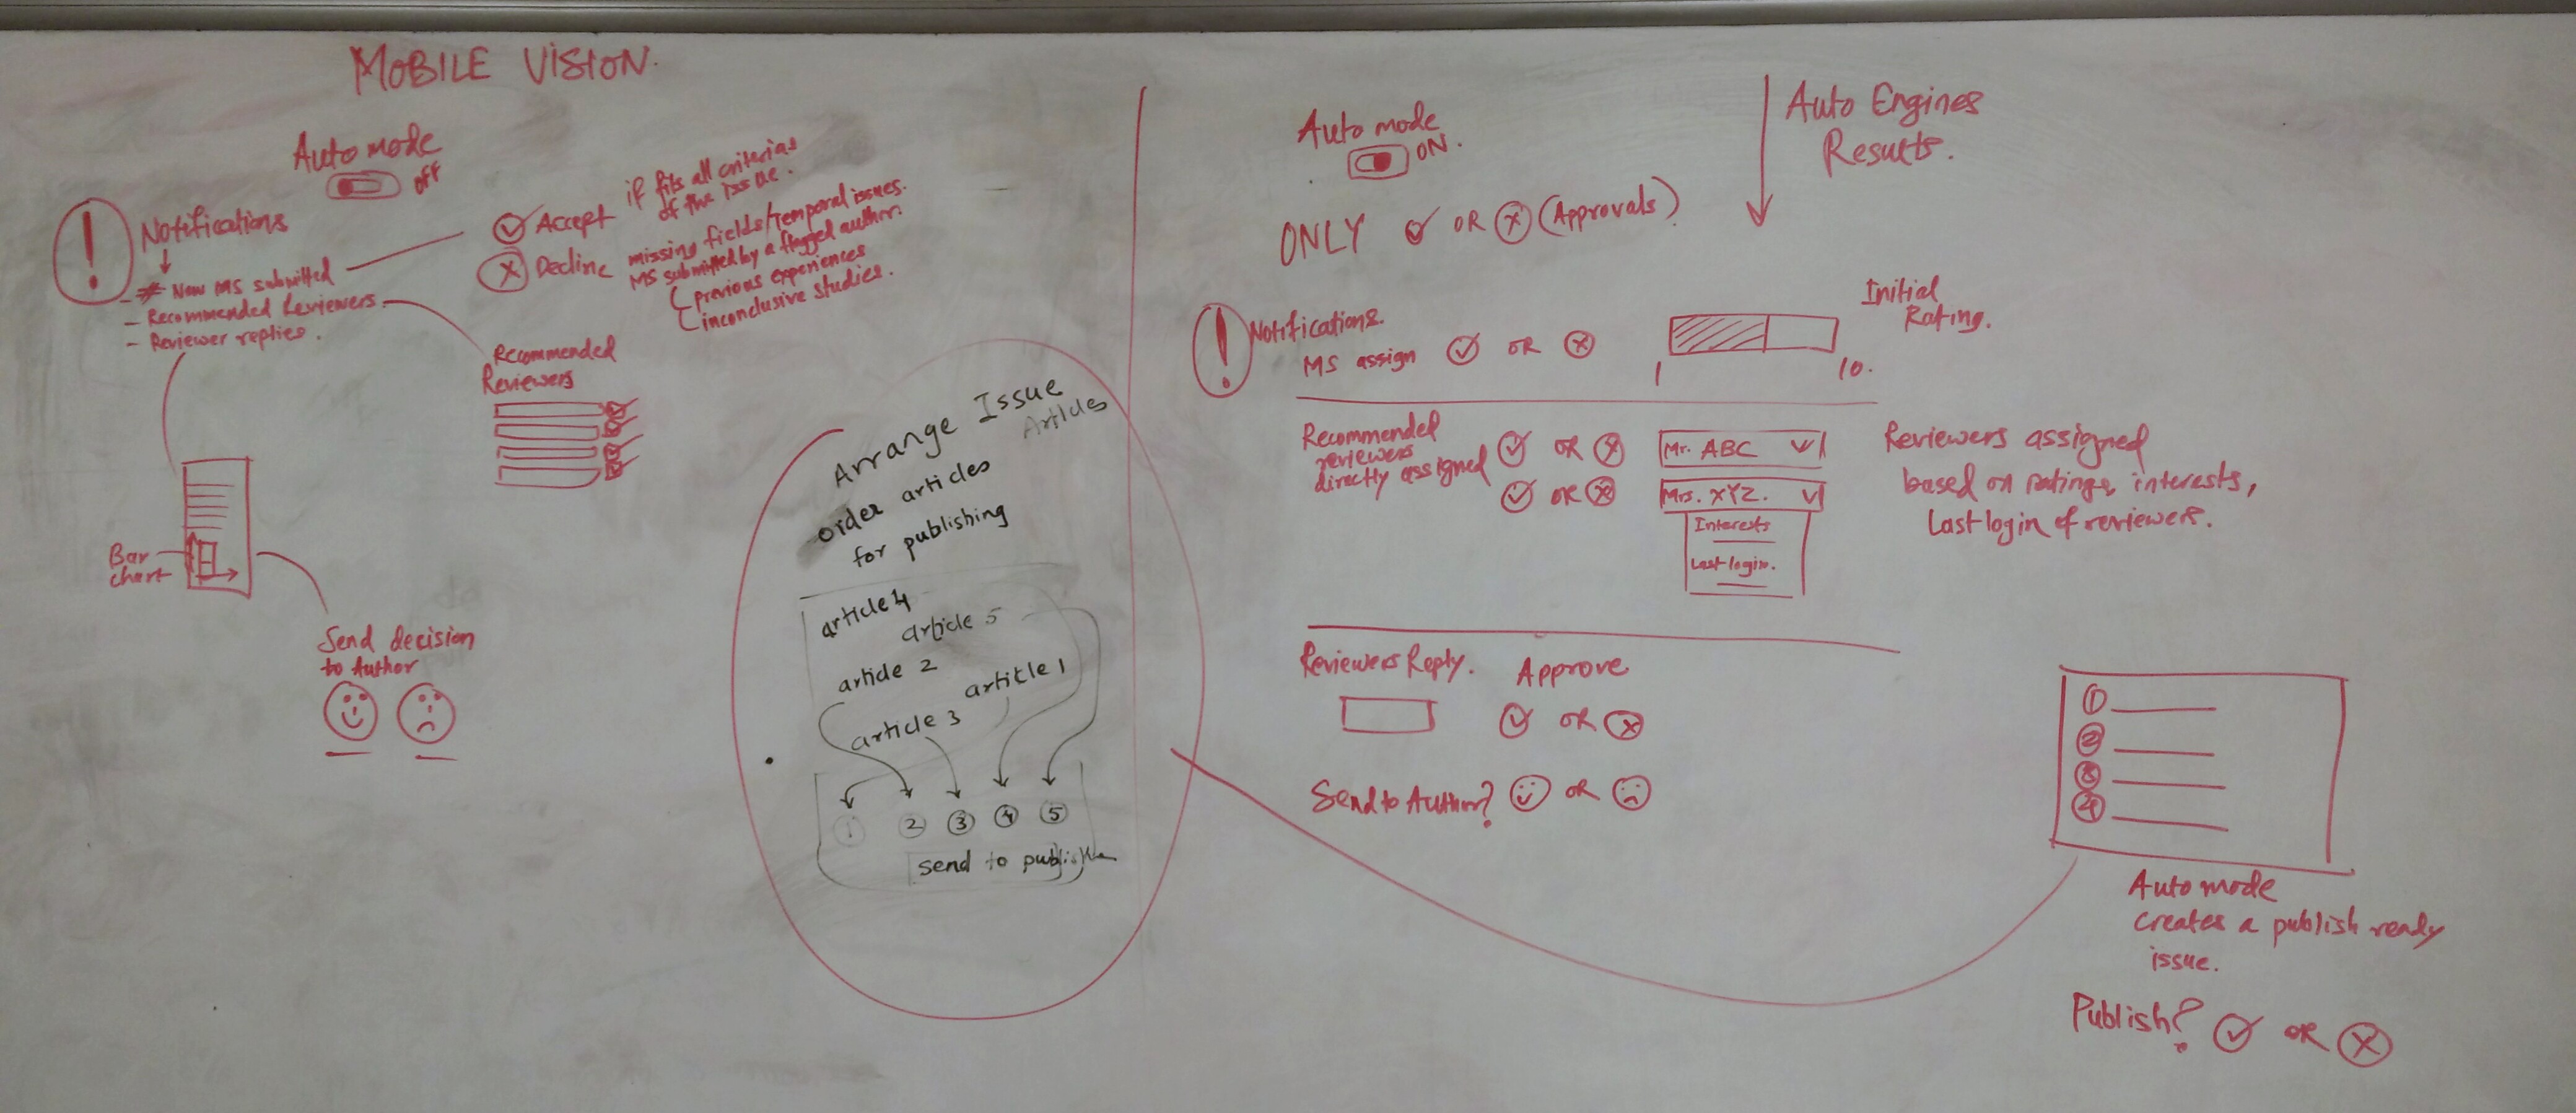 MOBILE VISION.
Auto mode
OFF
Notifications
- New MS submitted
- Recommended Reviewers.
- Reviewer replies.
Accept if fits all criterias
of the issue.
Decline missing fields/temporal issues.
MS submitted by a flagged author.
previous experiences
inconclusive studies.
Recommended
Reviewers
Bar
chart
Send decision
to Author
Arrange Issue
Articles
order articles
for publishing
article 4
article 5
article 2
article 1
article 3
1 2 3 4 5
send to publish
Auto mode
ON.
Auto Engines
Results.
ONLY OR (Approvals)
Notifications.
MS assign OR
Initial
Rating.
1 10.
Recommended
reviewers
directly assigned
OR
OR
Mr. ABC
Mrs. XYZ.
Interests
Last login.
Reviewers assigned
based on ratings, interests,
Last login of reviewers.
Reviewers Reply. Approve
OR
Send to Author? OR
1
2
3
4
Auto mode
creates a publish ready
issue.
Publish? OR